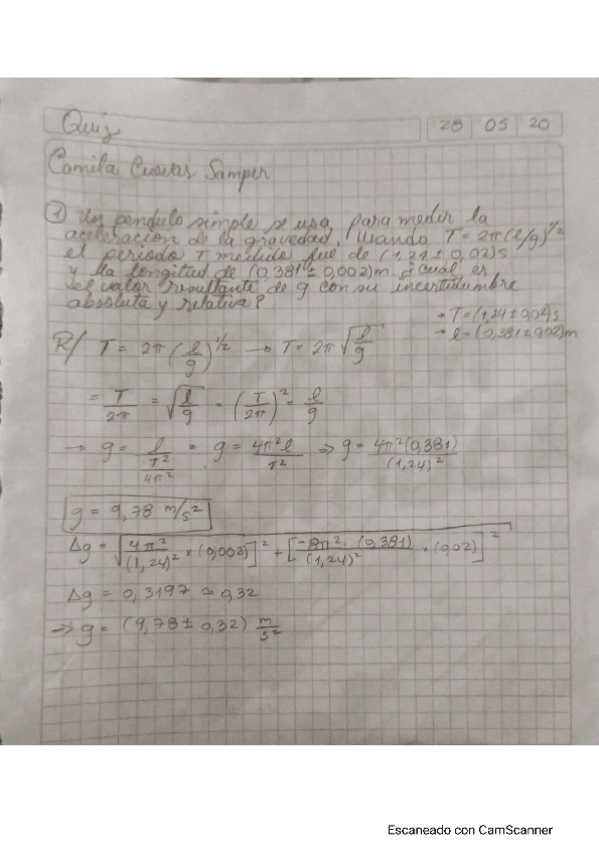 Quiz 28 05 20
Camila Cuevas Samper
① Un pendulo simple se usa para medir la
aceleración de la gravedad, Usando T = 2π(l/g)^1/2
el periodo T medido fue de (1,24 ± 0,02)s
y la longitud de (0,381 ± 0,002)m ¿cual es
el valor resultante de g con su incertidumbre
absoluta y relativa?
→ T = (1,24 ± 0,02)s
→ l = (0,381 ± 002)m
R/ T = 2π (l/g)^1/2 → T = 2π √(l/g)
= T/2π = √(l/g) = (T/2π)^2 = l/g
→ g = l/(T^2/4π^2) = g = 4π^2 l/T^2 ⇒ g = 4π^2 (0,381)/(1,24)^2
g = 9,78 m/s^2
Δg = √[4π^2/(1,24)^2 × (0,002)]^2 + [-8π^2 · (0,381)/(1,24)^2 × (0,02)]^2
Δg = 0,3197 ≃ 0,32
⇒ g = (9,78 ± 0,32) m/s^2
Escaneado con CamScanner